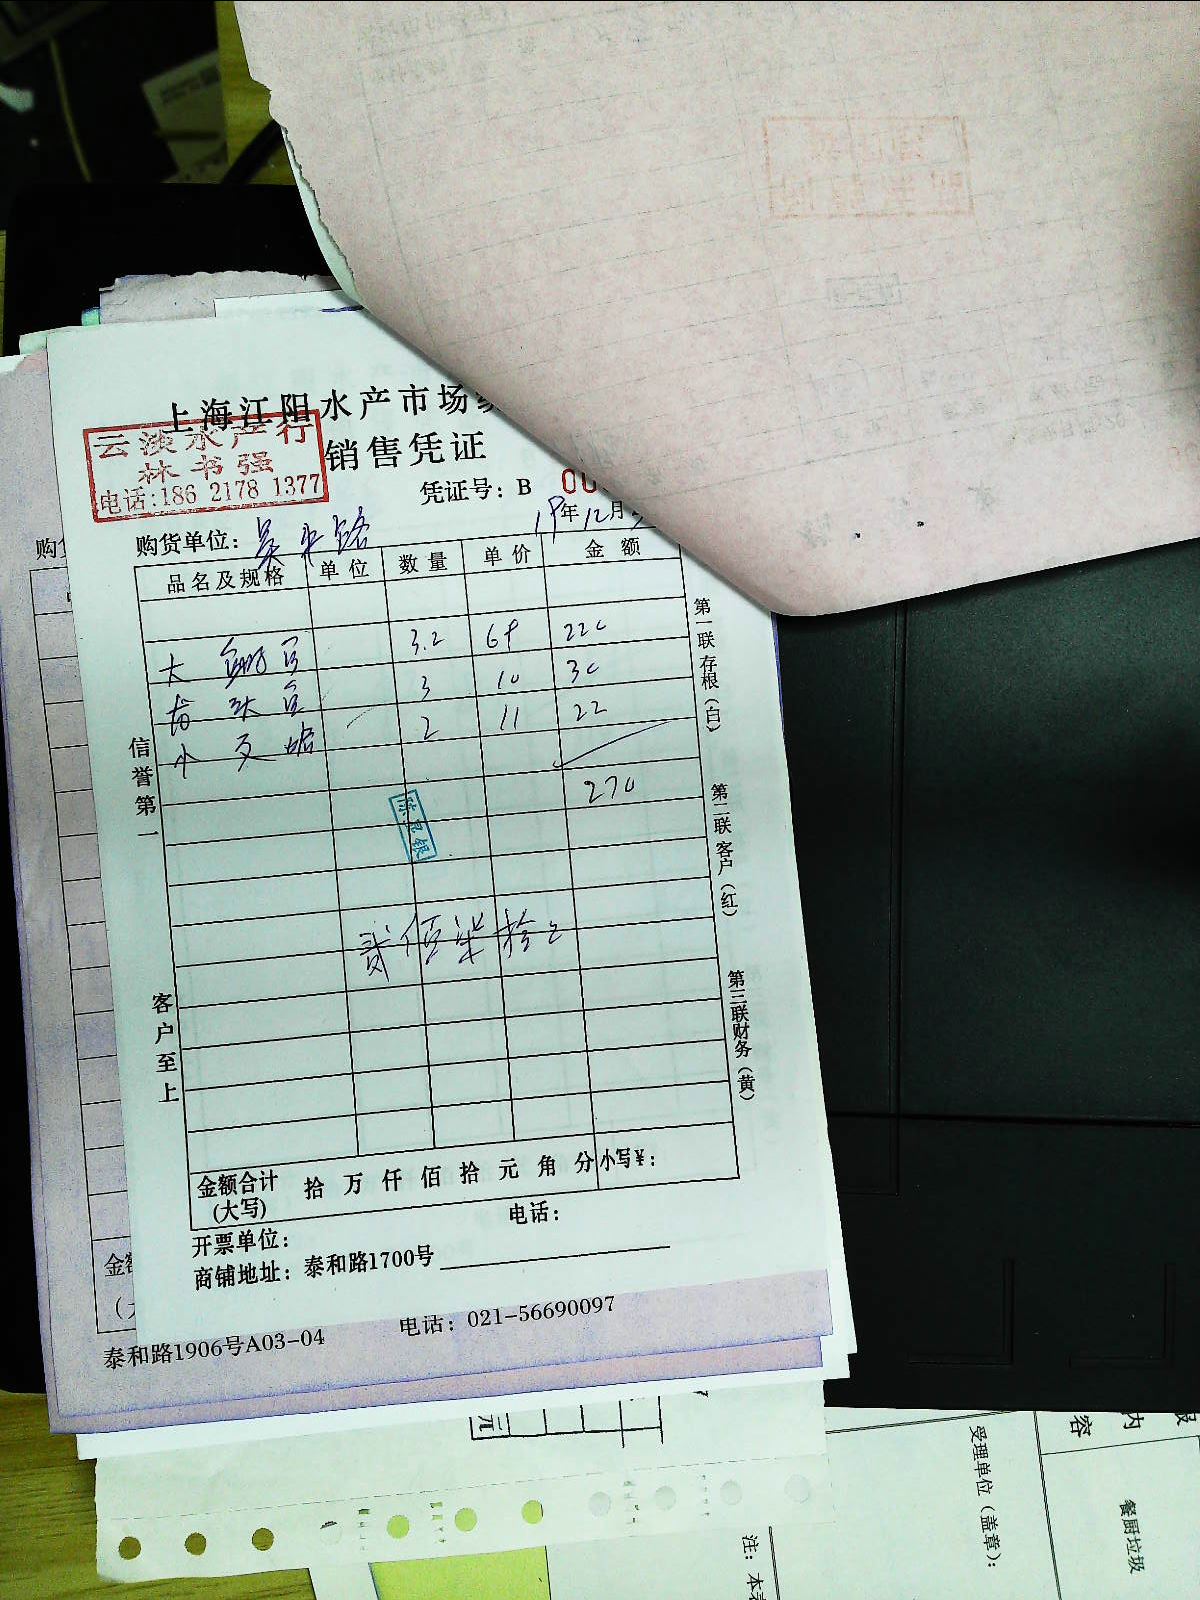 上海江阳水产市场
云淡水产行
林书强
电话:186 2178 1377
销售凭证
凭证号：B 00
19年12月
购货单位：
品名及规格 单位 数量 单价 金额
3.2 69 220
3 10 30
小 2 11 22
270
陈昆银
贰佰柒拾元
信誉第一
客户至上
第一联存根（白）
第二联客户（红）
第三联财务（黄）
金额合计
(大写)
拾 万 仟 佰 拾 元 角 分 小写¥：
开票单位： 电话：
商铺地址：泰和路1700号
泰和路1906号A03-04 电话：021-56690097
元
内
容
受理单位（盖章）：
餐厨垃圾
注：